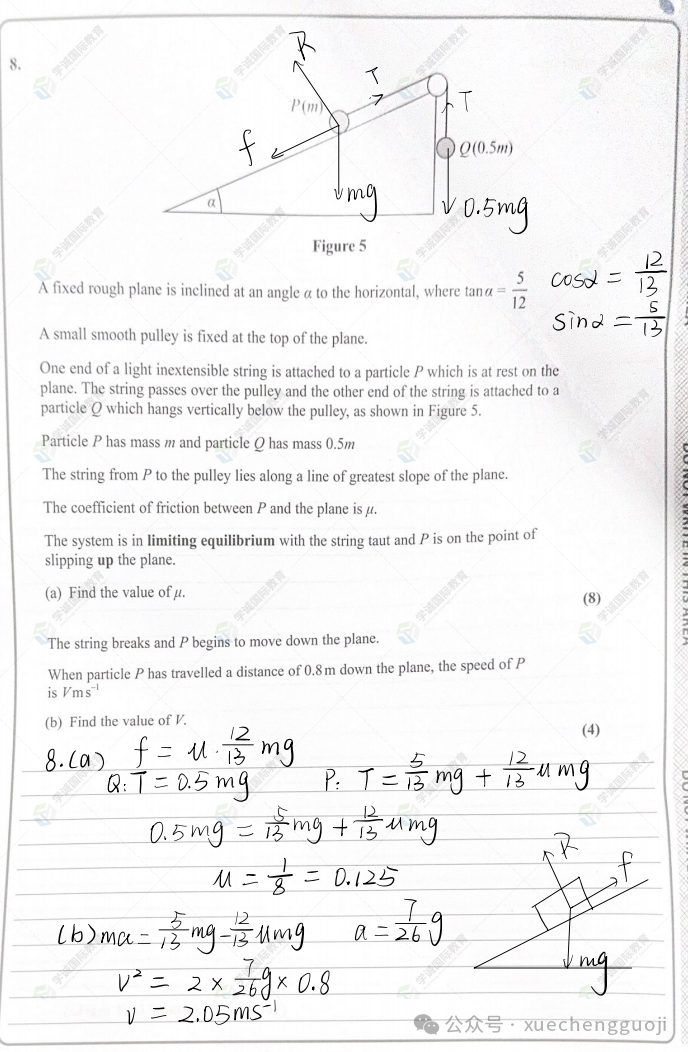 8.
R
T
P(m)
T
f
Q(0.5m)
α
mg
0.5mg
Figure 5
A fixed rough plane is inclined at an angle α to the horizontal, where tan α = 5/12
cosα = 12/13
sinα = 5/13
A small smooth pulley is fixed at the top of the plane.
One end of a light inextensible string is attached to a particle P which is at rest on the
plane. The string passes over the pulley and the other end of the string is attached to a
particle Q which hangs vertically below the pulley, as shown in Figure 5.
Particle P has mass m and particle Q has mass 0.5m
The string from P to the pulley lies along a line of greatest slope of the plane.
The coefficient of friction between P and the plane is μ.
The system is in limiting equilibrium with the string taut and P is on the point of
slipping up the plane.
(a) Find the value of μ.
(8)
The string breaks and P begins to move down the plane.
When particle P has travelled a distance of 0.8 m down the plane, the speed of P
is V m s⁻¹
(b) Find the value of V.
(4)
8.(a) f = μ · 12/13 mg
Q: T = 0.5mg P: T = 5/13 mg + 12/13 μmg
0.5mg = 5/13 mg + 12/13 μmg
μ = 1/8 = 0.125
R
f
mg
(b) ma = 5/13 mg - 12/13 μmg a = 7/26 g
V² = 2 × 7/26 g × 0.8
V = 2.05ms⁻¹
DO NOT WRITE IN THIS AREA
学诚国际教育
公众号 · xuechengguoji